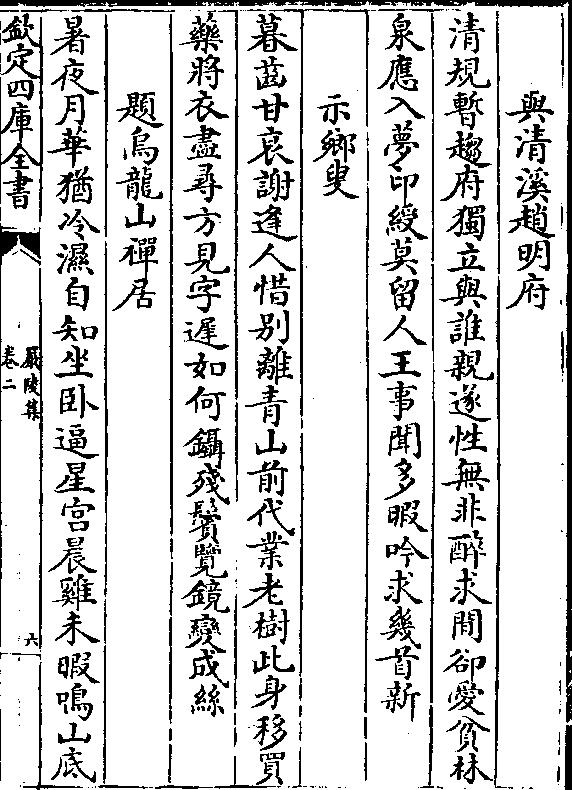 與清溪趙明府
清規暫趨府獨立與誰親遂性無非醉求閒卻愛貧林
泉應入夢印綬莫留人王事聞多暇吟求幾首新
示鄉叟
暮齒甘衰謝逢人惜别離青山前代業老樹此身移買
藥將衣盡尋方見字遲如何鑷殘鬢覽鏡變成絲
題烏龍山禪居
暑夜月華猶冷濕自知坐卧逼星宫晨雞未暇鳴山底
欽定四庫全書
嚴陵集
卷二
六